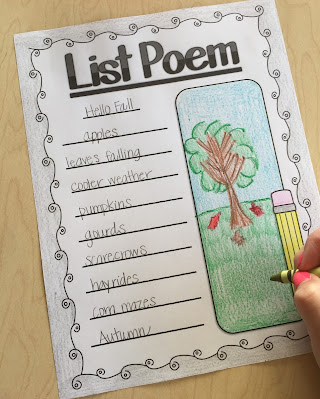 List Poem
Hello Fall
apples
leaves falling
cooler weather
pumpkins
gourds
scarecrows
hayrides
corn mazes
Autumn